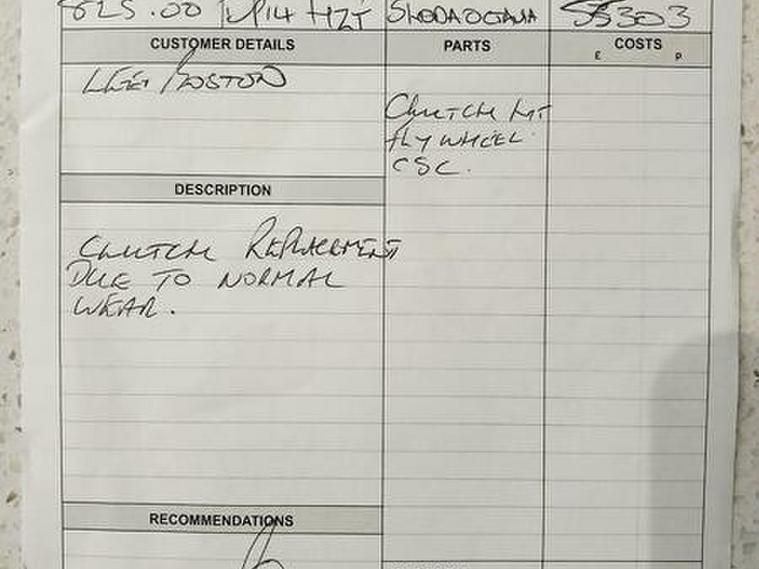 825.00 HZT SKODA OCTAVIA 55303
CUSTOMER DETAILS PARTS COSTS
£ P
LEE BOSTON
CLUTCH KIT
FLYWHEEL
CSC.
DESCRIPTION
CLUTCH REPLACEMENT
DUE TO NORMAL
WEAR.
RECOMMENDATIONS